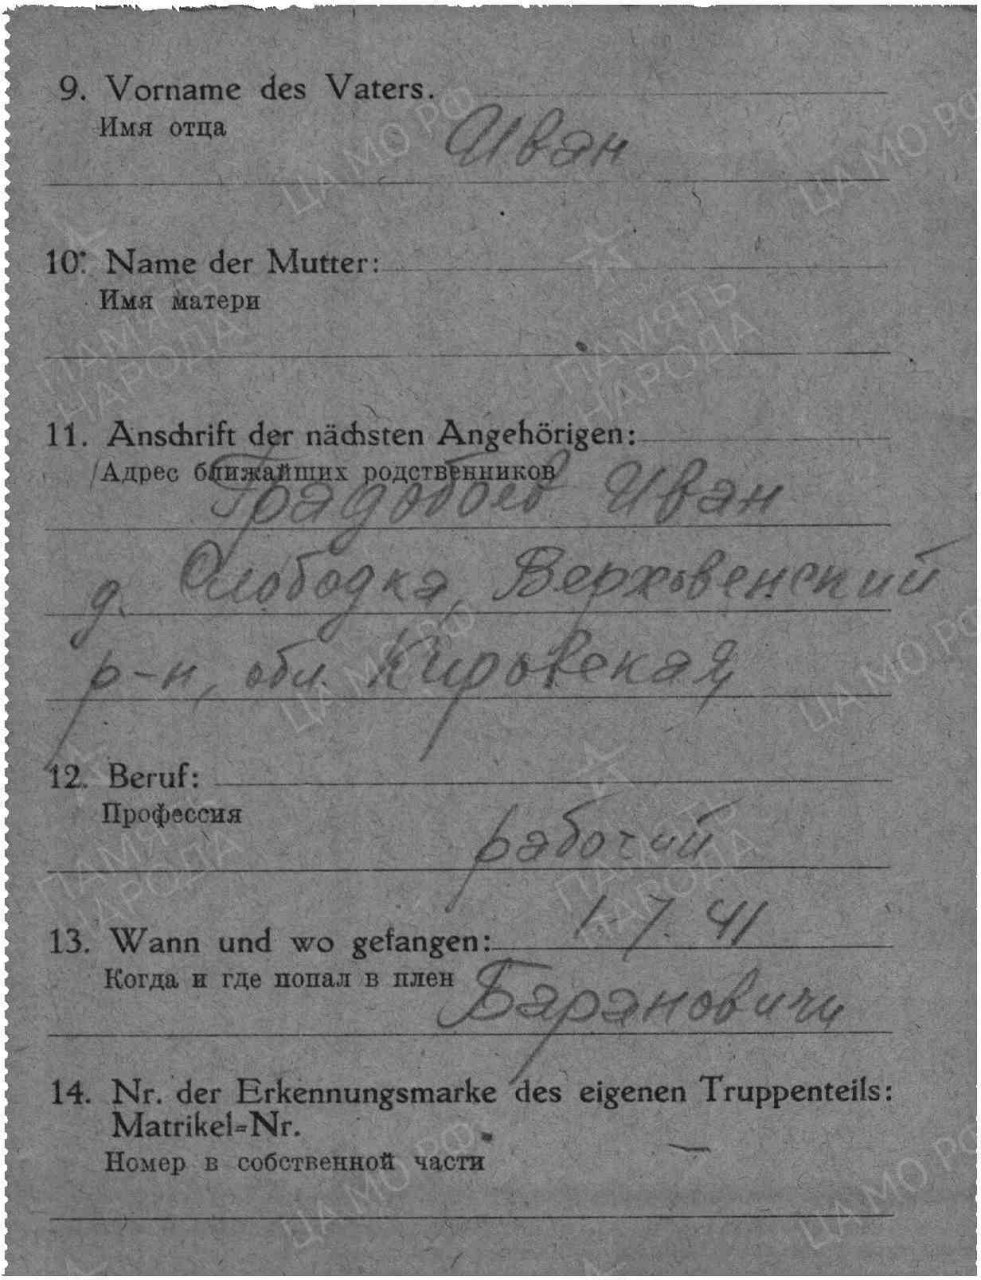 9. Vorname des Vaters.
Имя отца
Иван
10. Name der Mutter:
Имя матери
11. Anschrift der nächsten Angehörigen:
Адрес ближайших родственников
Градобоев Иван
д. Слободка, Верховенский
р-н, обл. Кировская
12. Beruf:
Профессия
рабочий
13. Wann und wo gefangen:
1.7.41
Когда и где попал в плен
Барановичи
14. Nr. der Erkennungsmarke des eigenen Truppenteils:
Matrikel=Nr.
Номер в собственной части
—
ЦА МО РФ
ПАМЯТЬ
НАРОДА